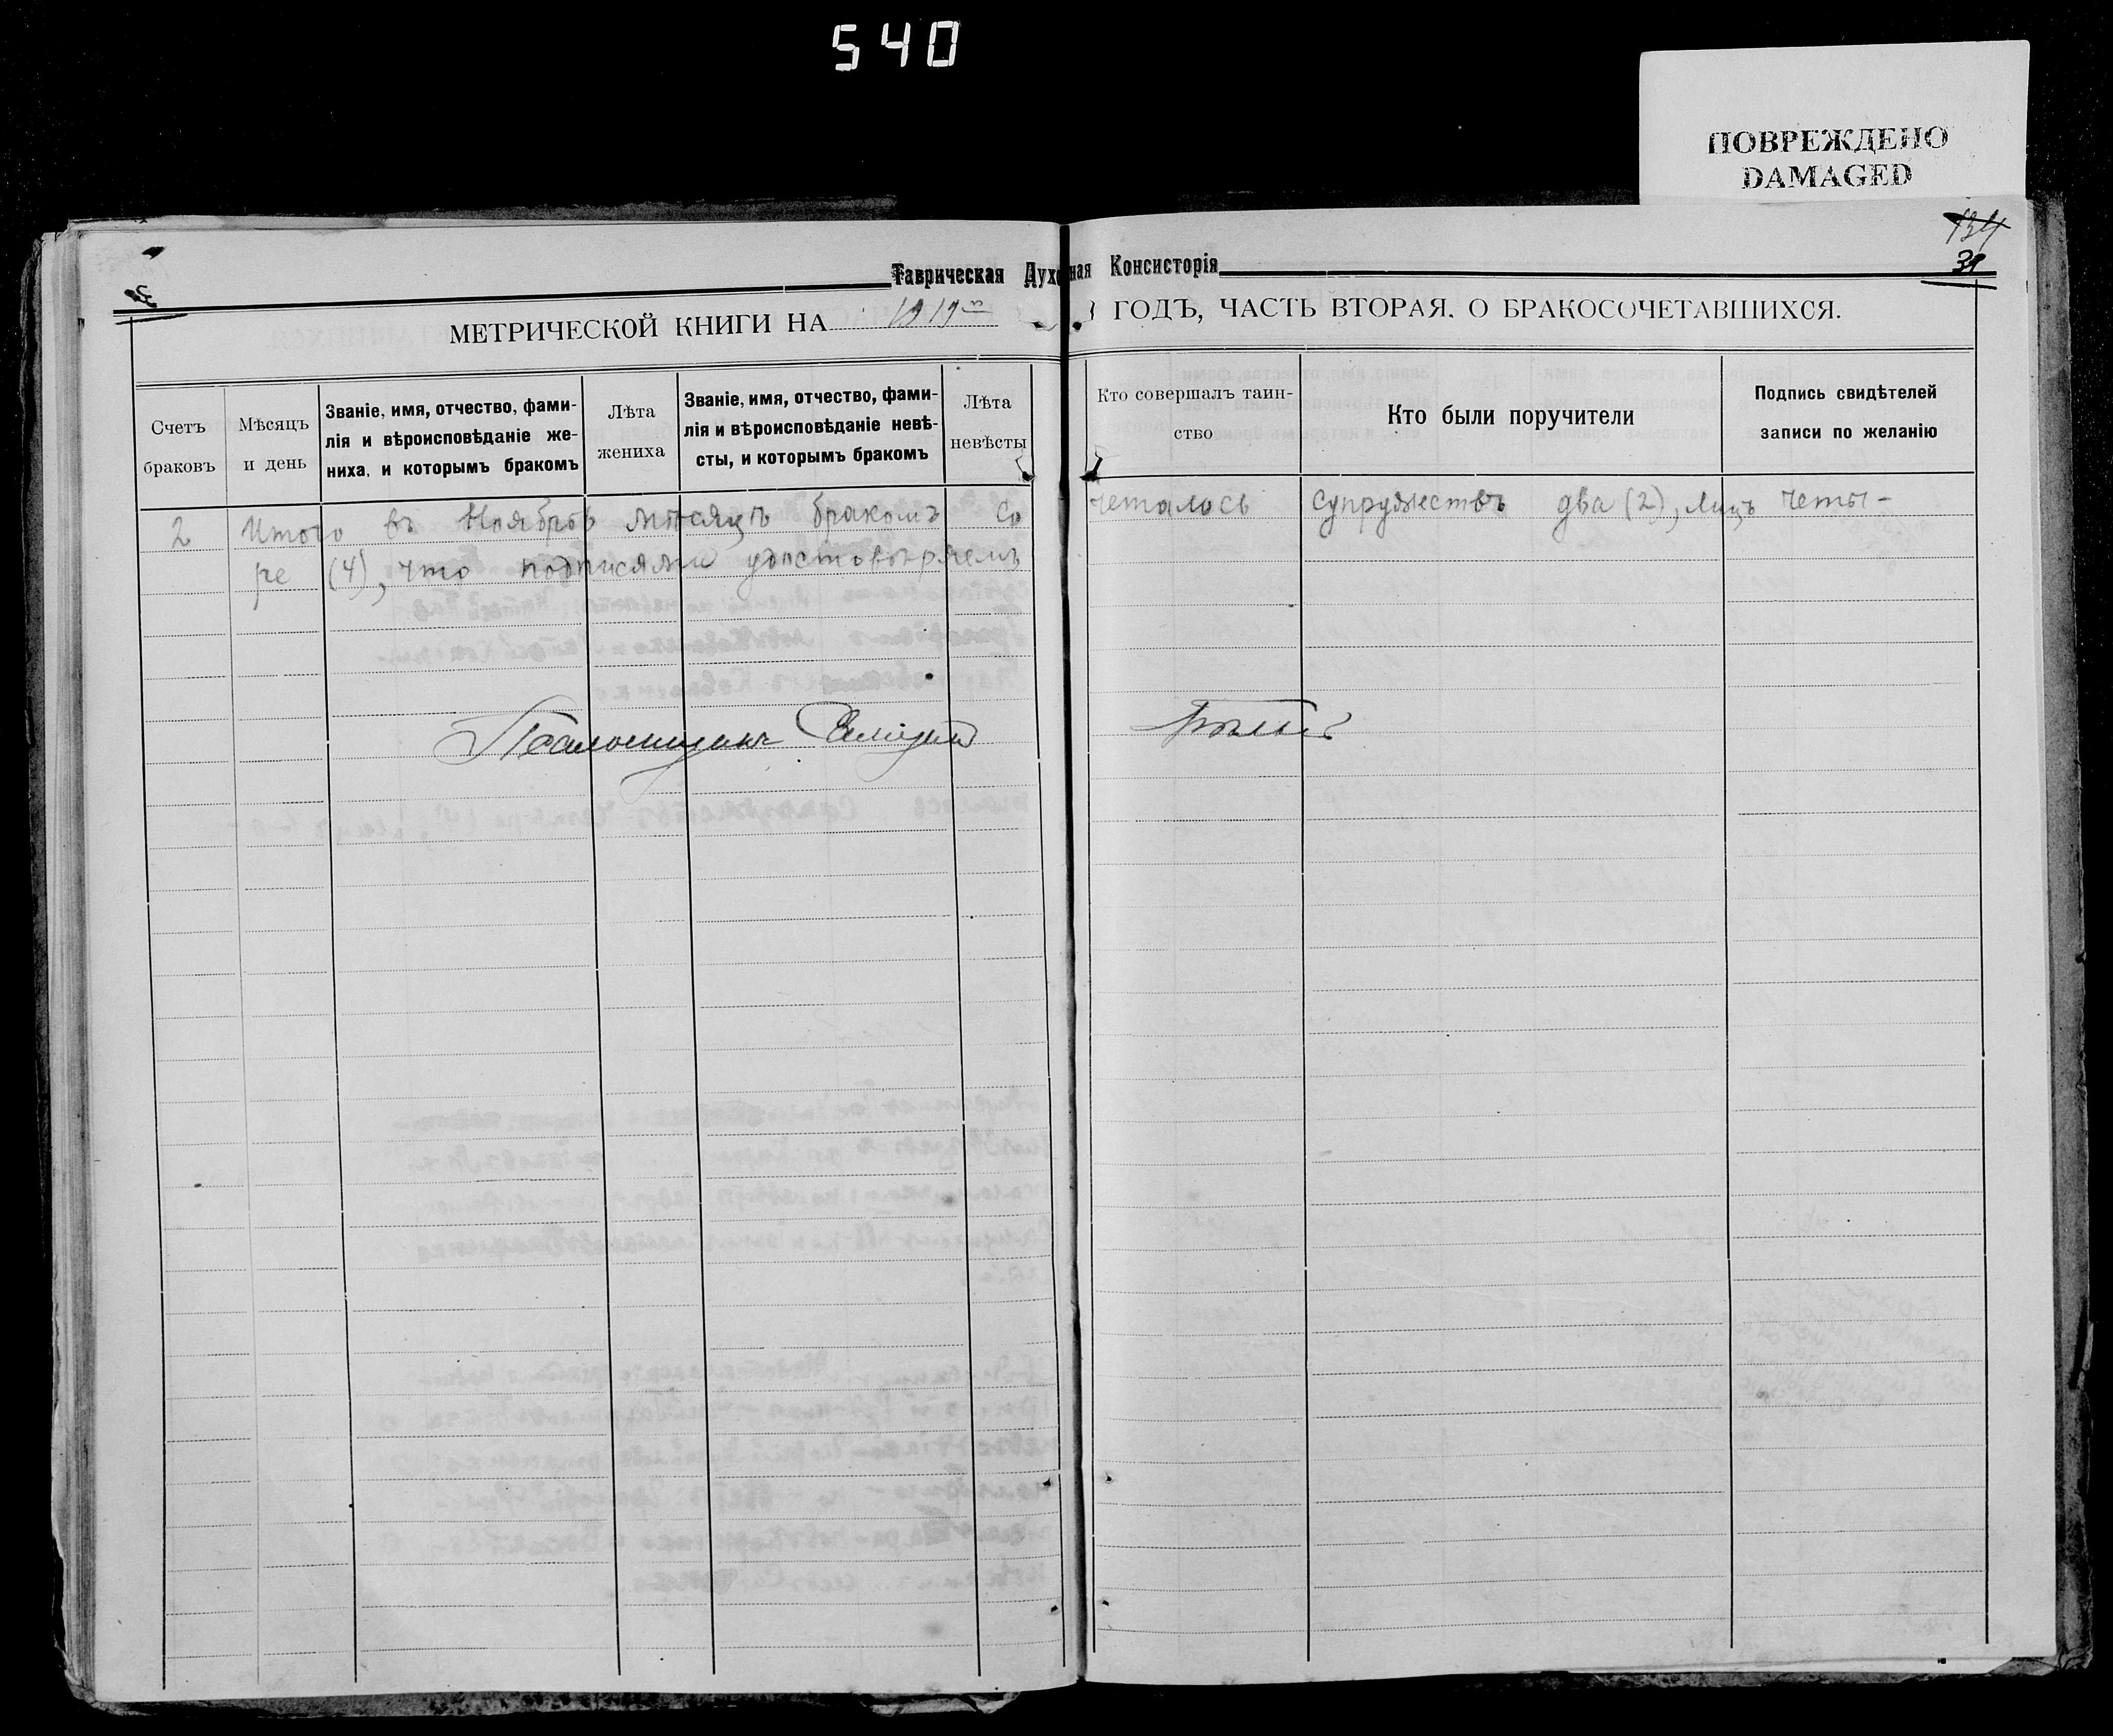 540
ПОВРЕЖДЕНО
DAMAGED
134
31
Таврическая Духовная Консисторія
МЕТРИЧЕСКОЙ КНИГИ НА 1919 ГОДЪ, ЧАСТЬ ВТОРАЯ, О БРАКОСОЧЕТАВШИХСЯ.
Счетъ браковъ
Мѣсяцъ и день
Званіе, имя, отчество, фами-
лія и вѣроисповѣданіе же-
ниха, и которымъ бракомъ
Лѣта жениха
Званіе, имя, отчество, фами-
лія и вѣроисповѣданіе невѣ-
сты, и которымъ бракомъ
Лѣта невѣсты
Кто совершалъ таин-
ство
Кто были поручители
Подпись свидѣтелей
записи по желанію
2 Итого въ Ноябрѣ мѣсяцѣ бракомъ со четалось супружествъ два (2), лицъ четы-
ре (4), что подписями удостовѣряемъ
Псаломщикъ